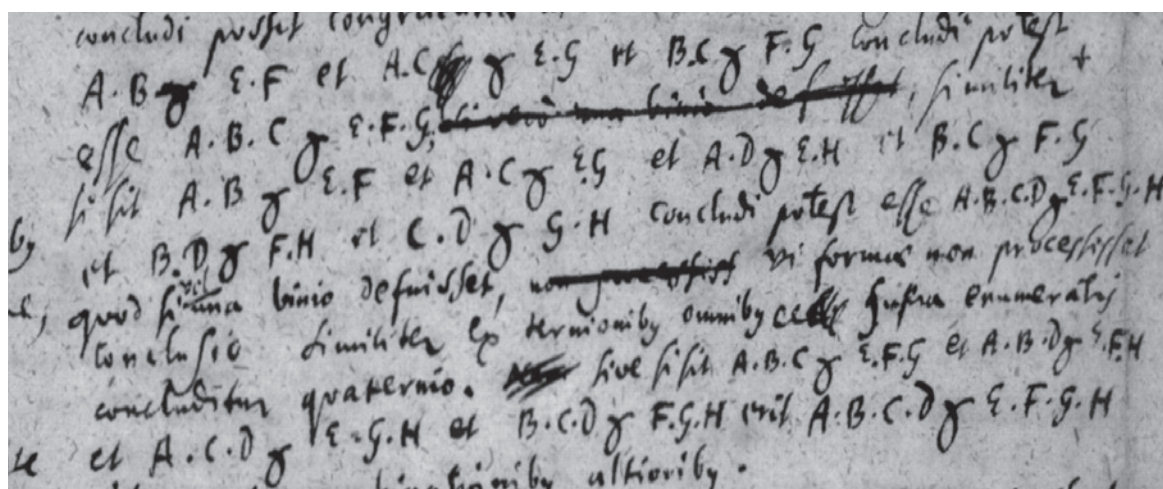 concludi posset
A.B ɣ E.F et A.C ɣ E.G et B.C ɣ F.G concludi potest
esse A.B.C ɣ E.F.G, similiter +
si sit A.B ɣ E.F et A.C ɣ E.G et A.D ɣ E.H et B.C ɣ F.G
et B.D ɣ F.H et C.D ɣ G.H concludi potest esse A.B.C.D ɣ E.F.G.H
quod si una binio defuisset, vi formae non processisset
conclusio Similiter ex ternionibꝰ omnibꝰ infra enumeratis
concluditur quaternio. sive si sit A.B.C ɣ E.F.G et A.B.D ɣ E.F.H
et A.C.D ɣ E.G.H et B.C.D ɣ F.G.H erit A.B.C.D ɣ E.F.G.H
altioribꝰ.